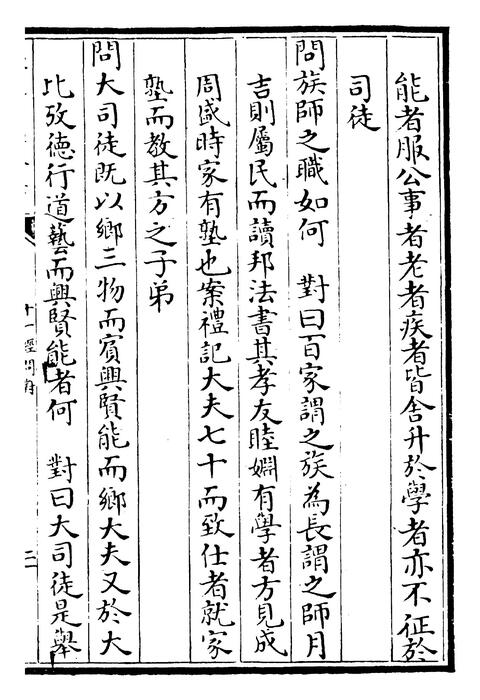 能者服公事者老者疾者皆舍升於學者亦不征於
司徒
問族師之職如何　對曰百家謂之族為長謂之師月
吉則屬民而讀邦法書其孝友睦婣有學者方見成
周盛時家有塾也案禮記大夫七十而致仕者就家
塾而教其方之子弟
問大司徒既以鄉三物而賓興賢能而鄉大夫又於大
比攷德行道藝而興賢能者何　對曰大司徒是舉
十一經問對
二